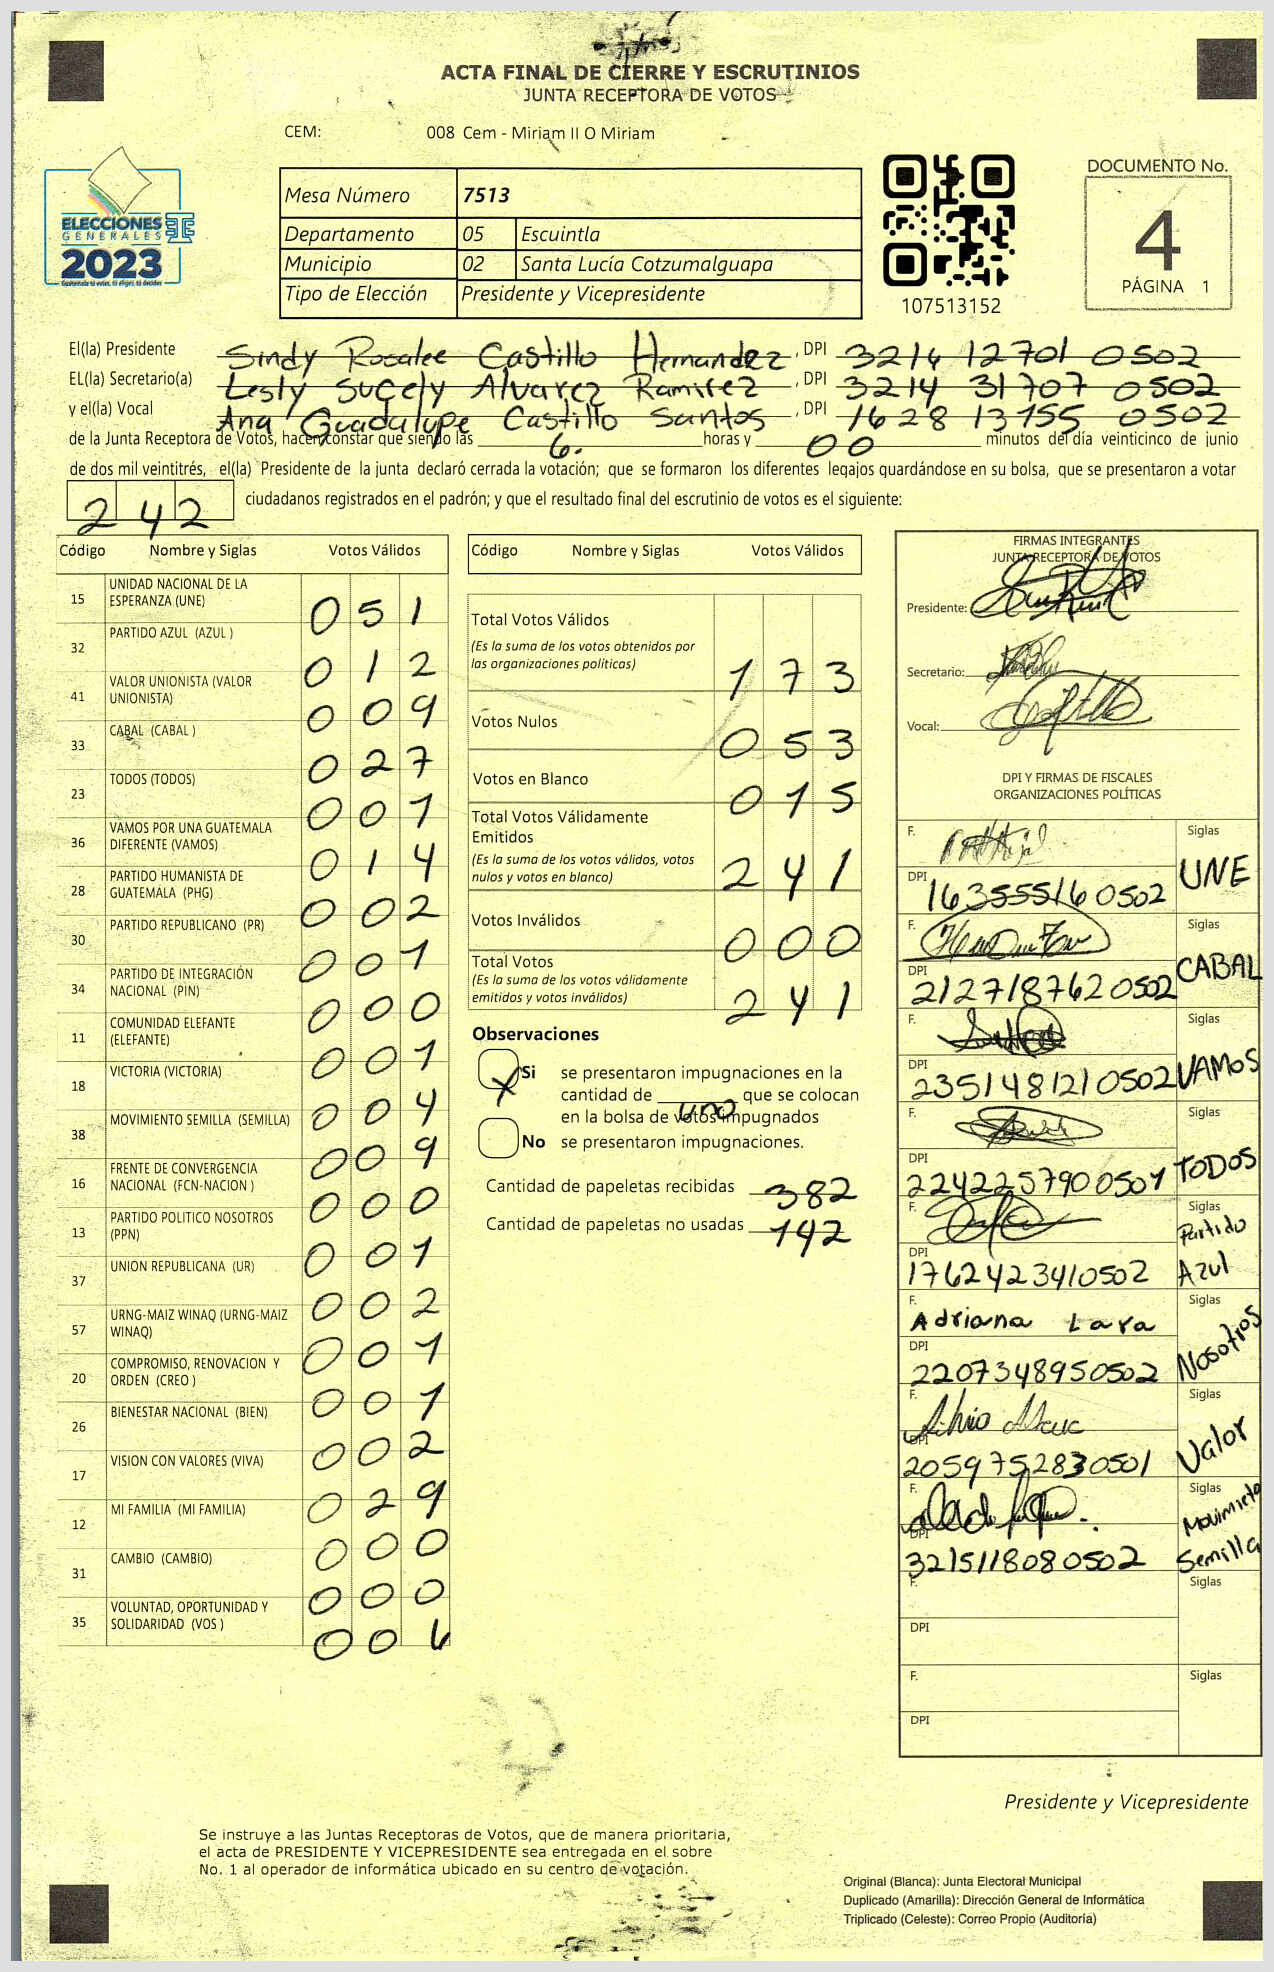 ACTA FINAL DE CIERRE Y ESCRUTINIOS
JUNTA RECEPTORA DE VOTOS
CEM: 008 Cem - Miriam II O Miriam
ELECCIONES
GENERALES
2023
Mesa Número 7513
Departamento 05 Escuintla
Municipio 02 Santa Lucía Cotzumalguapa
Tipo de Elección Presidente y Vicepresidente
107513152
DOCUMENTO No.
4
PÁGINA 1
El(la) Presidente Sindy Rosalee Castillo Hernandez, DPI 3214 12701 0502
EL(la) Secretario(a) Lesly Sucely Alvarez Ramirez, DPI 3214 31707 0502
y el(la) Vocal Ana Guadalupe Castillo Santos, DPI 1628 13755 0502
de la Junta Receptora de Votos, hacen constar que siendo las 6. horas y 00 minutos del día veinticinco de junio
de dos mil veintitrés, el(la) Presidente de la junta declaró cerrada la votación; que se formaron los diferentes legajos guardándose en su bolsa, que se presentaron a votar
242 ciudadanos registrados en el padrón; y que el resultado final del escrutinio de votos es el siguiente:
Código Nombre y Siglas Votos Válidos
15 UNIDAD NACIONAL DE LA ESPERANZA (UNE) 051
32 PARTIDO AZUL (AZUL ) 012
41 VALOR UNIONISTA (VALOR UNIONISTA) 009
33 CABAL (CABAL ) 027
23 TODOS (TODOS) 001
36 VAMOS POR UNA GUATEMALA DIFERENTE (VAMOS) 014
28 PARTIDO HUMANISTA DE GUATEMALA (PHG) 002
30 PARTIDO REPUBLICANO (PR) 001
34 PARTIDO DE INTEGRACIÓN NACIONAL (PIN) 000
11 COMUNIDAD ELEFANTE (ELEFANTE) 001
18 VICTORIA (VICTORIA) 004
38 MOVIMIENTO SEMILLA (SEMILLA) 009
16 FRENTE DE CONVERGENCIA NACIONAL (FCN-NACION ) 000
13 PARTIDO POLITICO NOSOTROS (PPN) 001
37 UNION REPUBLICANA (UR) 002
57 URNG-MAIZ WINAQ (URNG-MAIZ WINAQ) 001
20 COMPROMISO, RENOVACION Y ORDEN (CREO ) 001
26 BIENESTAR NACIONAL (BIEN) 002
17 VISION CON VALORES (VIVA) 029
12 MI FAMILIA (MI FAMILIA) 000
31 CAMBIO (CAMBIO) 000
35 VOLUNTAD, OPORTUNIDAD Y SOLIDARIDAD (VOS ) 006
Código Nombre y Siglas Votos Válidos
Total Votos Válidos 173
(Es la suma de los votos obtenidos por
las organizaciones politicas)
Votos Nulos 053
Votos en Blanco 015
Total Votos Válidamente
Emitidos 241
(Es la suma de los votos válidos, votos
nulos y votos en blanco)
Votos Inválidos 000
Total Votos 241
(Es la suma de los votos válidamente
emitidos y votos inválidos)
Observaciones
X Si se presentaron impugnaciones en la
cantidad de uno que se colocan
en la bolsa de votos impugnados
No se presentaron impugnaciones.
Cantidad de papeletas recibidas 382
Cantidad de papeletas no usadas 142
FIRMAS INTEGRANTES
JUNTA RECEPTORA DE VOTOS
Presidente:
Secretario:
Vocal:
DPI Y FIRMAS DE FISCALES
ORGANIZACIONES POLÍTICAS
F. Siglas
DPI 163555160502 UNE
F. Siglas
DPI 2127187620502 CABAL
F. Siglas
DPI 2351481210502 VAMOS
F. Siglas
DPI 2242257900501 TODOS
F. Siglas
DPI 1762423410502 Partido Azul
F. Adriana Lara Siglas
DPI 2207348950502 Nosotros
F. Siglas
DPI 2059752830501 Valor
F. Siglas
DPI 3215118080502 Movimieto Semilla
F. Siglas
DPI
F. Siglas
DPI
Presidente y Vicepresidente
Se instruye a las Juntas Receptoras de Votos, que de manera prioritaria,
el acta de PRESIDENTE Y VICEPRESIDENTE sea entregada en el sobre
No. 1 al operador de informática ubicado en su centro de votación.
Original (Blanca): Junta Electoral Municipal
Duplicado (Amarilla): Dirección General de Informática
Triplicado (Celeste): Correo Propio (Auditoría)